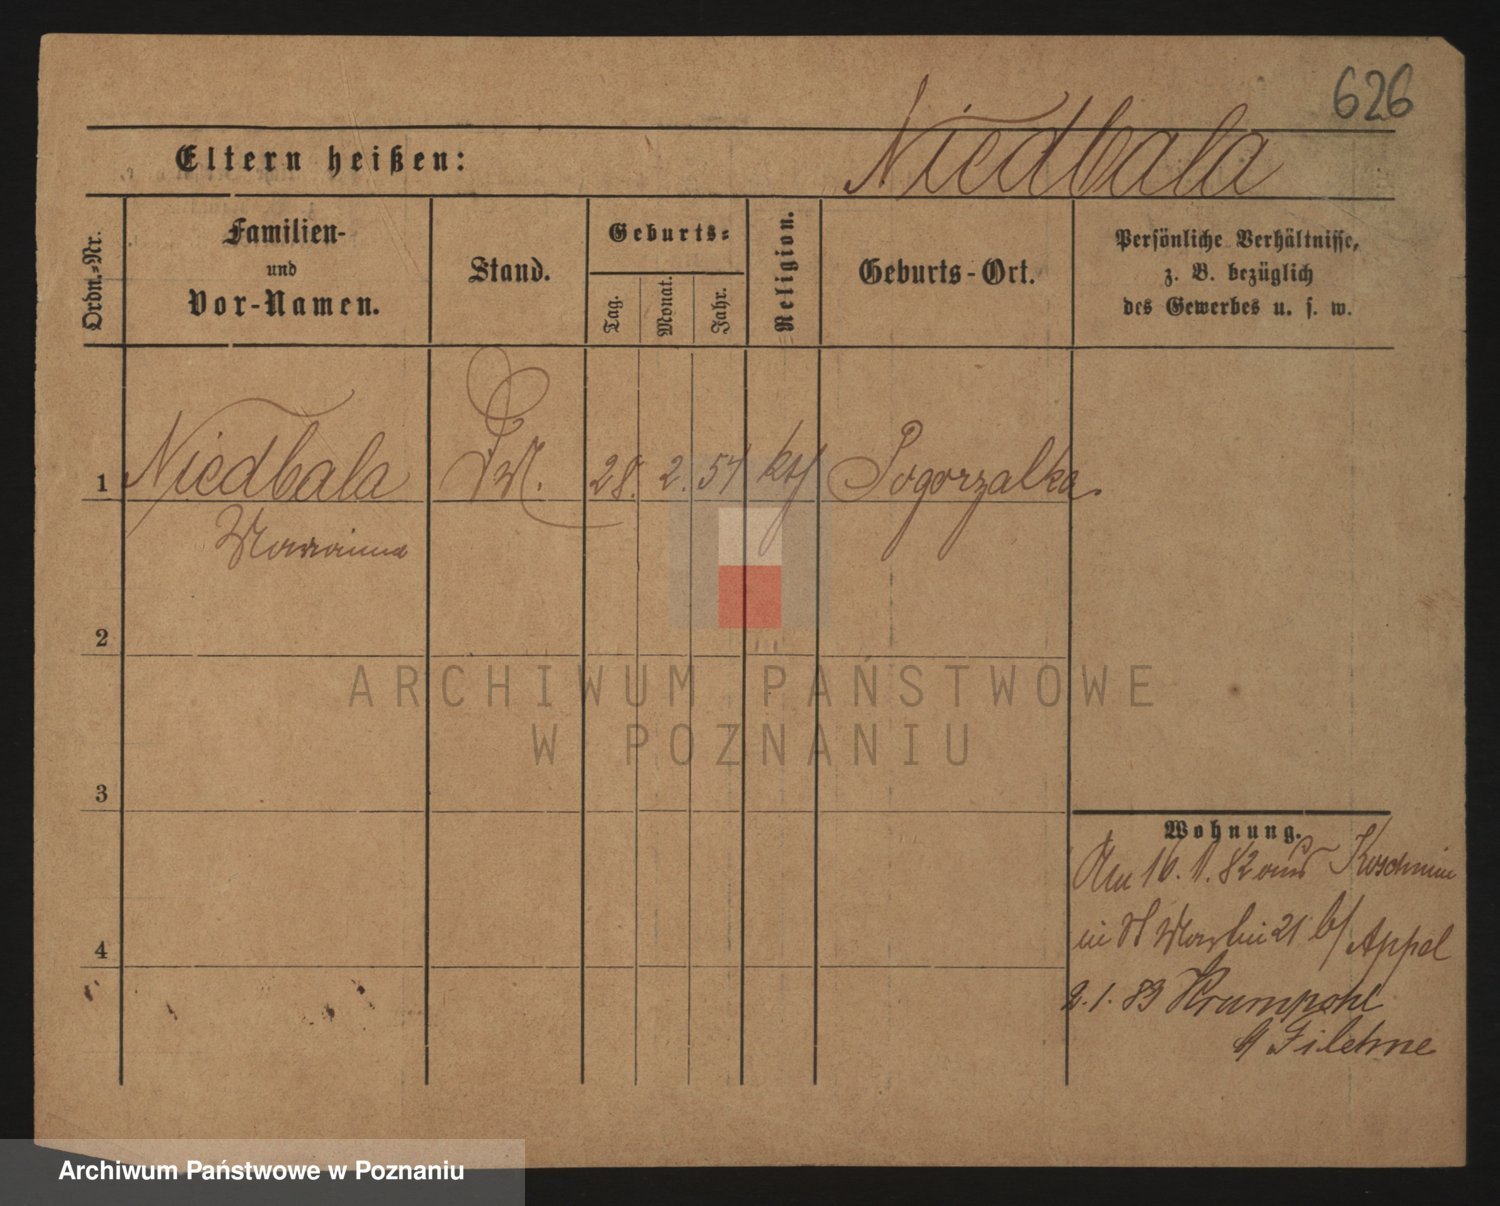 626
Niedbala
Eltern heißen:
Ordn.-Nr.
Familien-
und
Vor-Namen.
Stand.
Geburts-
Tag.
Monat.
Jahr.
Religion.
Geburts-Ort.
Persönliche Verhältnisse,
z. B. bezüglich
des Gewerbes u. s. w.
1 Niedbala 28. 2. 57 kth Pogorzalka.
Marianna
2
3
4
Wohnung.
Am 16. 1. 82 aus Koschmin
in St Martin 21 b/ Appel
2. 1. 83 Krumpohl
b/ Filehne
ARCHIWUM PAŃSTWOWE
W POZNANIU
Archiwum Państwowe w Poznaniu